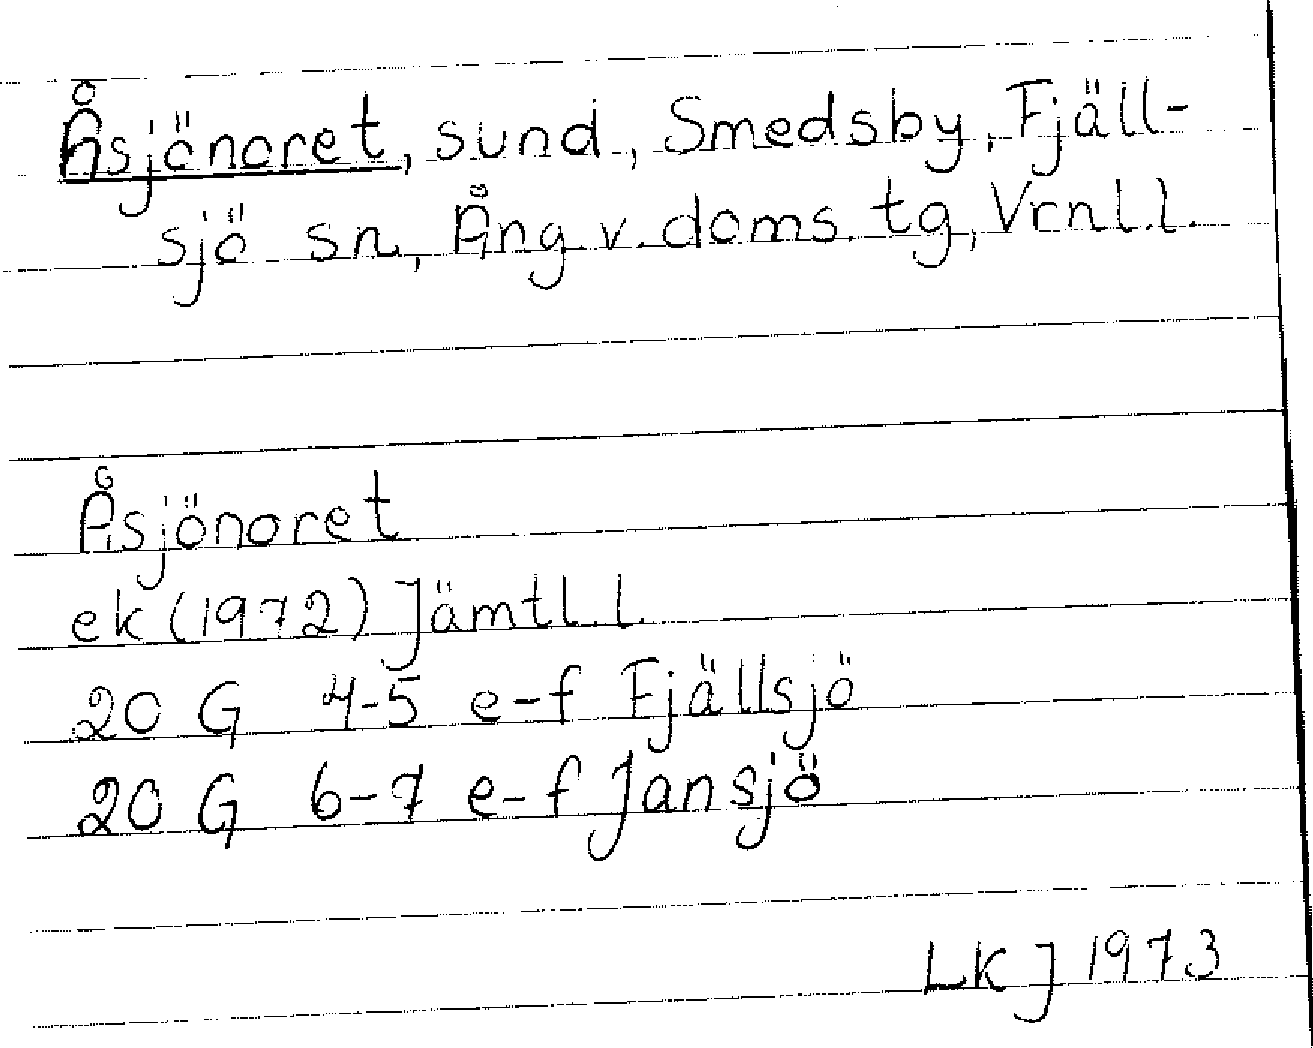 Åsjönoret, sund, Smedsby, Fjäll-
sjö sn, Ång v. doms. tg, Vrnl.l.
Åsjönoret
ek (1972) Jämtl.l.
20 G 4-5 e-f Fjällsjö
20 G 6-7 e-f Jansjö
LKJ 1973